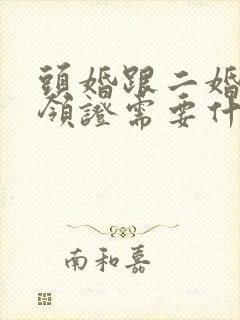 頭婚跟二婚
領證需要什
南和嘉